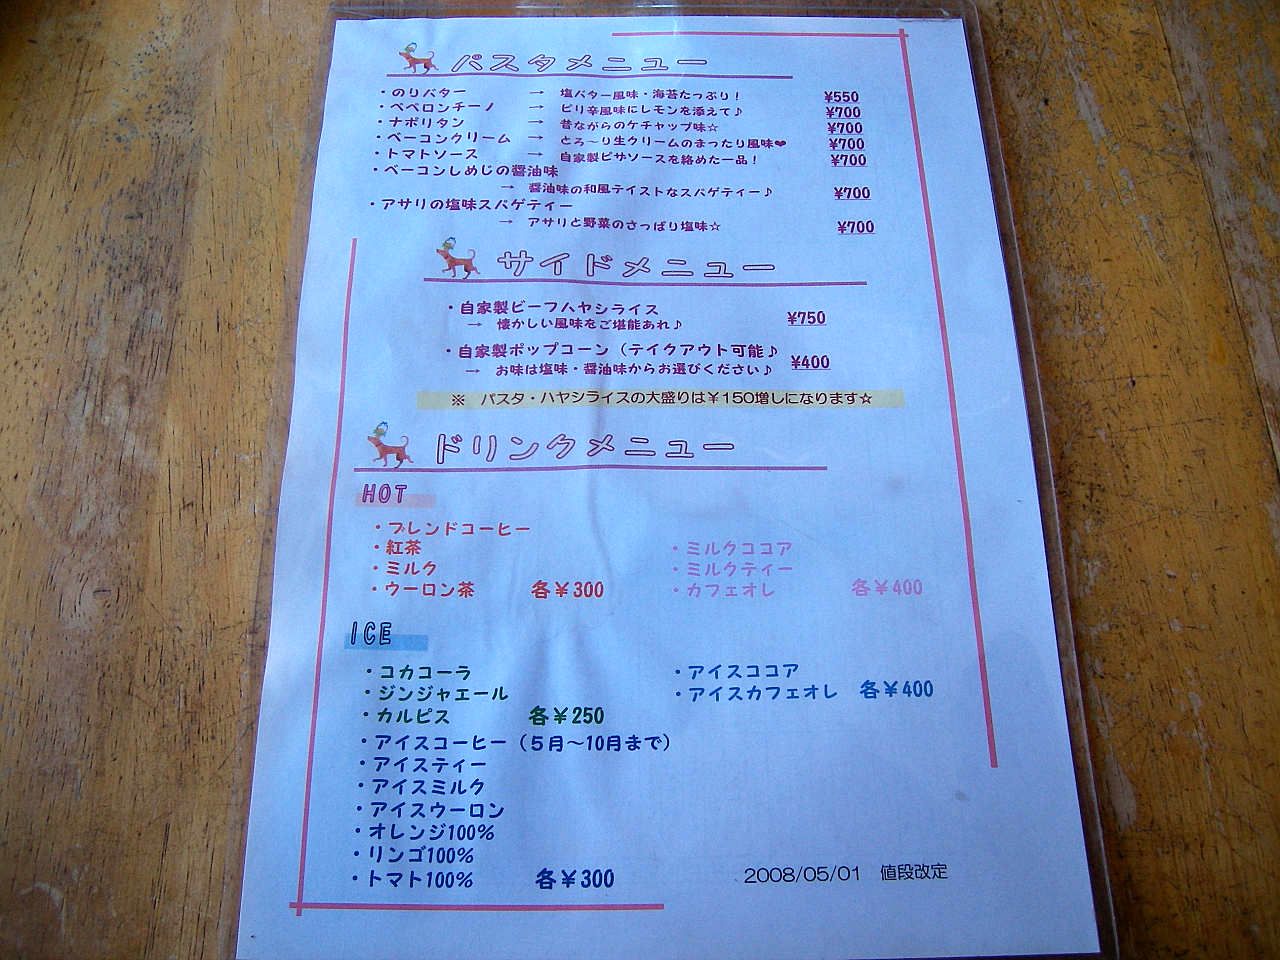 パスタメニュー
・のりバター → 塩バター風味・海苔たっぷり! ¥550
・ペペロンチーノ → ピリ辛風味にレモンを添えて♪ ¥700
・ナポリタン → 昔ながらのケチャップ味☆ ¥700
・ベーコンクリーム → とろ〜り生クリームのまったり風味❤ ¥700
・トマトソース → 自家製ピザソースを絡めた一品! ¥700
・ベーコンしめじの醤油味
→ 醤油味の和風テイストなスパゲティー♪ ¥700
・アサリの塩味スパゲティー
→ アサリと野菜のさっぱり塩味☆ ¥700
サイドメニュー
・自家製ビーフハヤシライス ¥750
→ 懐かしい風味をご堪能あれ♪
・自家製ポップコーン(テイクアウト可能♪ ¥400
→ お味は塩味・醤油味からお選びください♪
※ パスタ・ハヤシライスの大盛りは¥150増しになります☆
ドリンクメニュー
HOT
・ブレンドコーヒー
・紅茶
・ミルク
・ウーロン茶 各¥300
・ミルクココア
・ミルクティー
・カフェオレ 各¥400
ICE
・コカコーラ
・ジンジャエール
・カルピス 各¥250
・アイスココア
・アイスカフェオレ 各¥400
・アイスコーヒー(5月〜10月まで)
・アイスティー
・アイスミルク
・アイスウーロン
・オレンジ100%
・リンゴ100%
・トマト100% 各¥300
2008/05/01 値段改定